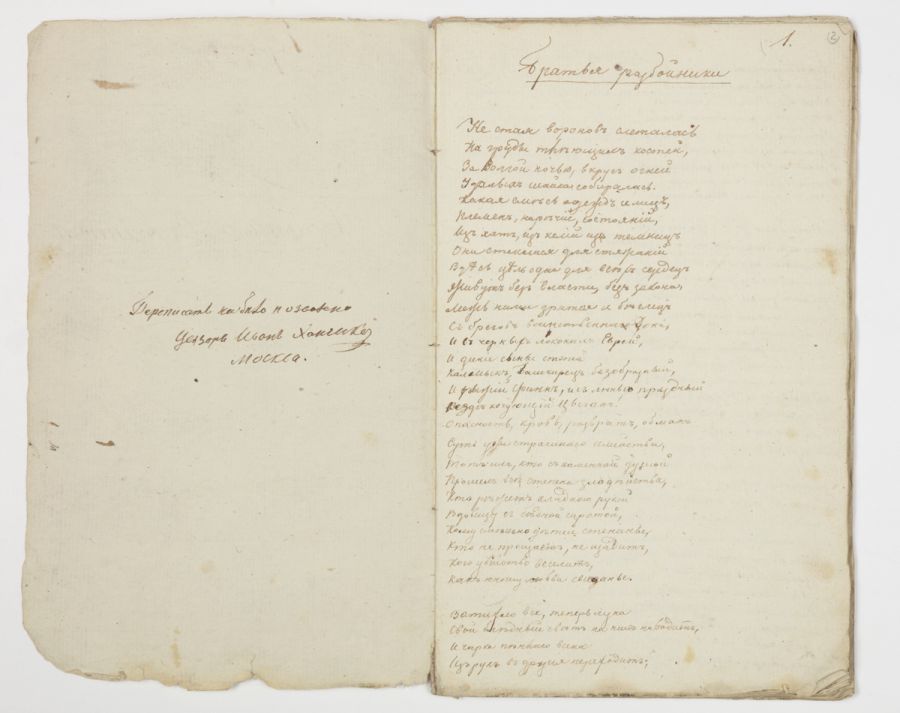 Цензоръ Иванъ
Москва.
1.
2
Братья разбойники
Не стая вороновъ слеталась
На груды тлѣющихъ костей,
За Волгой ночью, вкругъ огней
Удалыхъ шайка собиралась.
Какая смѣсь одеждъ и лицъ,
Племенъ, нарѣчій, состояній,
Изъ хатъ, изъ келій изъ темницъ
Они стеклися для стяжаній
Здѣсь цѣль одна для всѣхъ сердецъ
Живутъ безъ власти, безъ закона
Межъ ними зрится и бѣглецъ
Съ бреговъ воинственнаго Дона,
И въ черныхъ локонахъ Еврей,
И дикіе сыны степей
Калмыкъ, Башкирецъ безобразный,
И рыжій Финнъ, и съ лѣнью праздной
Вездѣ кочующій Цыганъ.
Опасность, кровь, развратъ, обманъ
Суть узы страшнаго семейства,
Тотъ ихъ, кто съ каменной душой
Прошелъ всѣ степени злодѣйства,
Кто рѣжетъ хладною рукой
Вдовицу съ бѣдной сиротой,
Кому смѣшно дѣтей стенанье,
Кто не прощаетъ, не щадитъ,
Кого убійство веселитъ,
Какъ юношу любви свиданье.
Затихло все, теперь луна
Свой блѣдный свѣтъ на нихъ наводитъ,
И чарка пѣннаго вина
Изъ рукъ въ другія переходитъ;